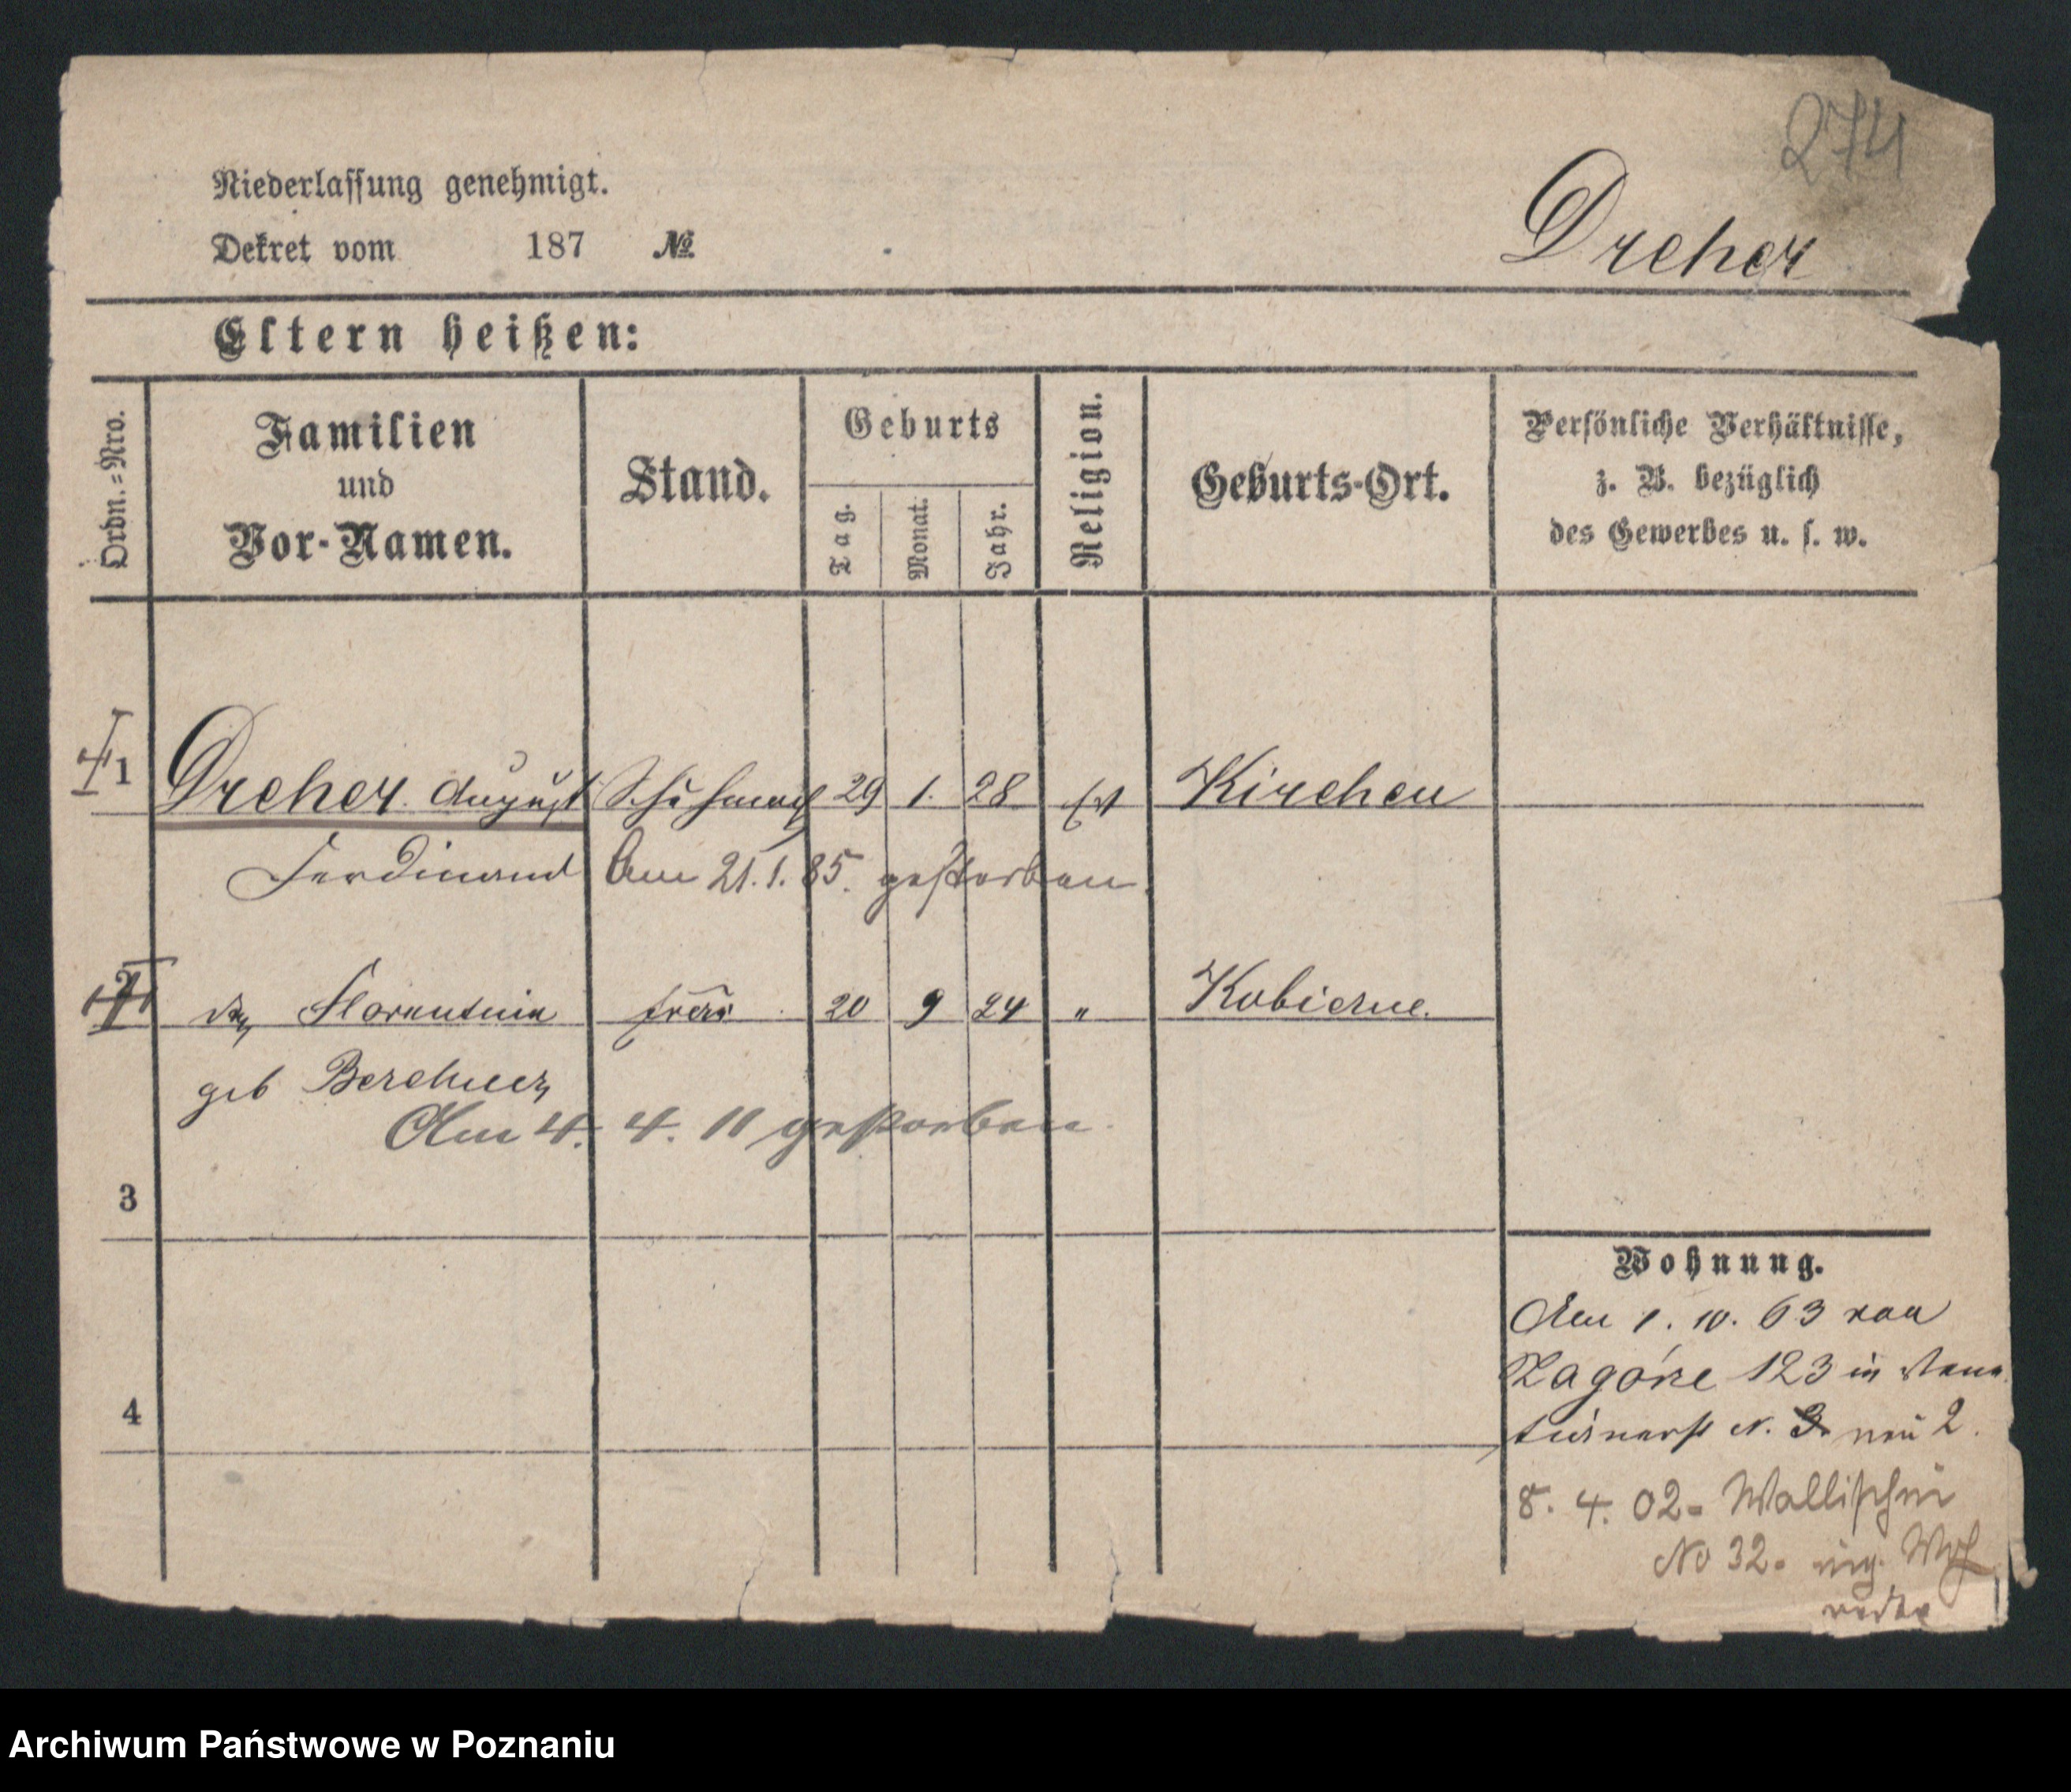 274
Niederlassung genehmigt.
Dekret vom 187 №
Dreher
Eltern heißen:
Ordn.=Nro.
Familien
und
Vor-Namen.
Stand.
Geburts
Tag.
Monat.
Jahr.
Religion.
Geburts-Ort.
Persönliche Verhältnisse,
z. B. bezüglich
des Gewerbes u. s. w.
1 Dreher August Schuhmach 29 1. 28 Kirchen
Ferdinand Am 21.1.85. gestorben.
2 Florentine Frau 20 9 24 " Kobierne.
geb
Am 4. 4. 11 gestorben.
3
Wohnung.
Am 1. 10. 63 von
Zagórze 123 in
N. neu 2.
4
8. 4. 02 - Wallischei
No 32.
Archiwum Państwowe w Poznaniu